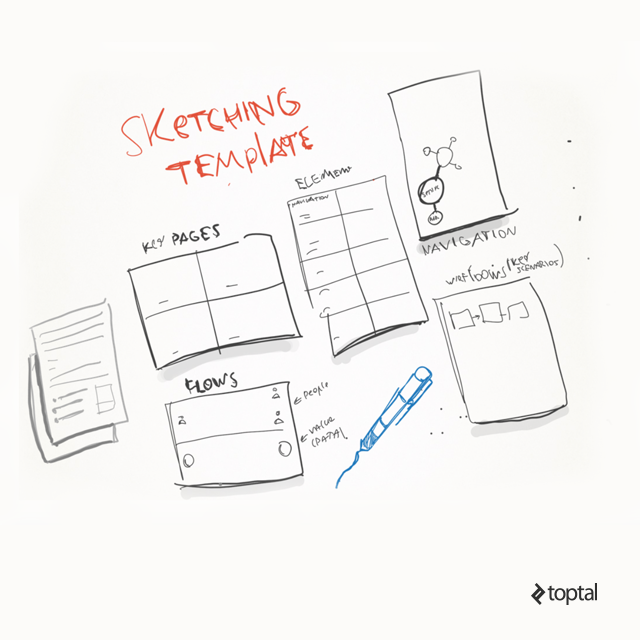 SKETCHING
TEMPLATE
ELEMENT
NAVIGATION
KEY PAGES
NAVIGATION
(KEY
SCENARIOS)
FLOWS
PEOPLE
VALUE
toptal